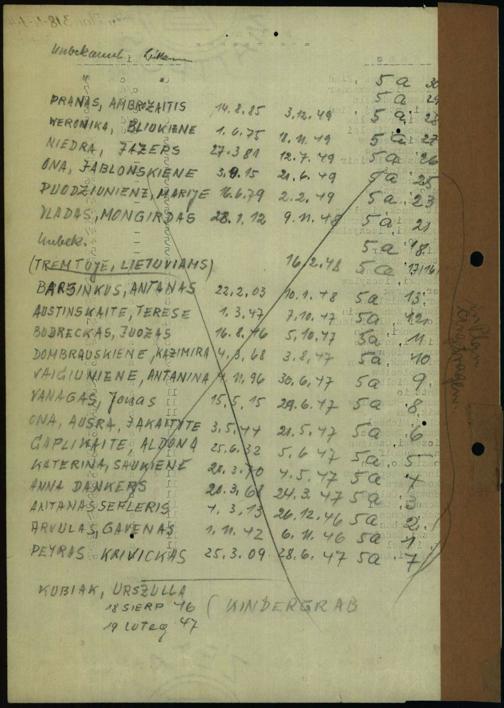 Unbekannt,
5a 30
5a 29
PRANAS, AMBROZAITIS 14.2.85 3.12.49 5a 28
WERONIKA, BLIUKIENE 1.6.75 18.11.49 5a 27
NIEDRA, JAZEPS 27.3.81 12.7.49 5a 26
ONA, JABLONSKIENE 3.9.15 21.6.49 5a 25
PUODZIUNIENE, MARIJE 16.6.79 2.2.49 5a 23
VLADAS, MONGIRDAS 28.1.12 9.11.48 5a 21
Unbek. 5a 18
(TREMTUJE, LIETUVIAMS) 16.2.48 5a 17/16
BARSINKUS, ANTANAS 22.2.03 10.1.48 5a 13
AUSTINSKAITE, TERESE 1.3.47 7.10.47 5a 12
BUDRECKAS, JUOZAS 16.8.76 5.10.47 5a 11
DOMBRAUSKIENE, KAZIMIRA 4.3.68 3.8.47 5a 10
VAIGIUNIENE, ANTANINA 4.11.96 30.6.47 5a 9
VANAGAS, Jonas 15.5.15 29.6.47 5a 8
ONA, AUSRA, JAKAITYTE 3.5.44 21.5.47 5a 6
GAPLIKAITE, ALDONA 25.6.32 5.6.47 5a 5
KATERINA, SAUKIENE 20.3.70 4.5.47 5a 4
ANNA DANKERS 20.3.68 24.3.47 5a 3
ANTANAS SEFLERIS 4.3.13 26.12.46 5a 2
ARVULAS, GAVENAS 1.11.42 6.11.46 5a 1
PEYRAS KRIVICKAS 25.3.09 28.6.47 5a 7
KUBIAK, URSZULLA
18 SIERP 46 ( KINDERGRAB
19 LUTEG 47